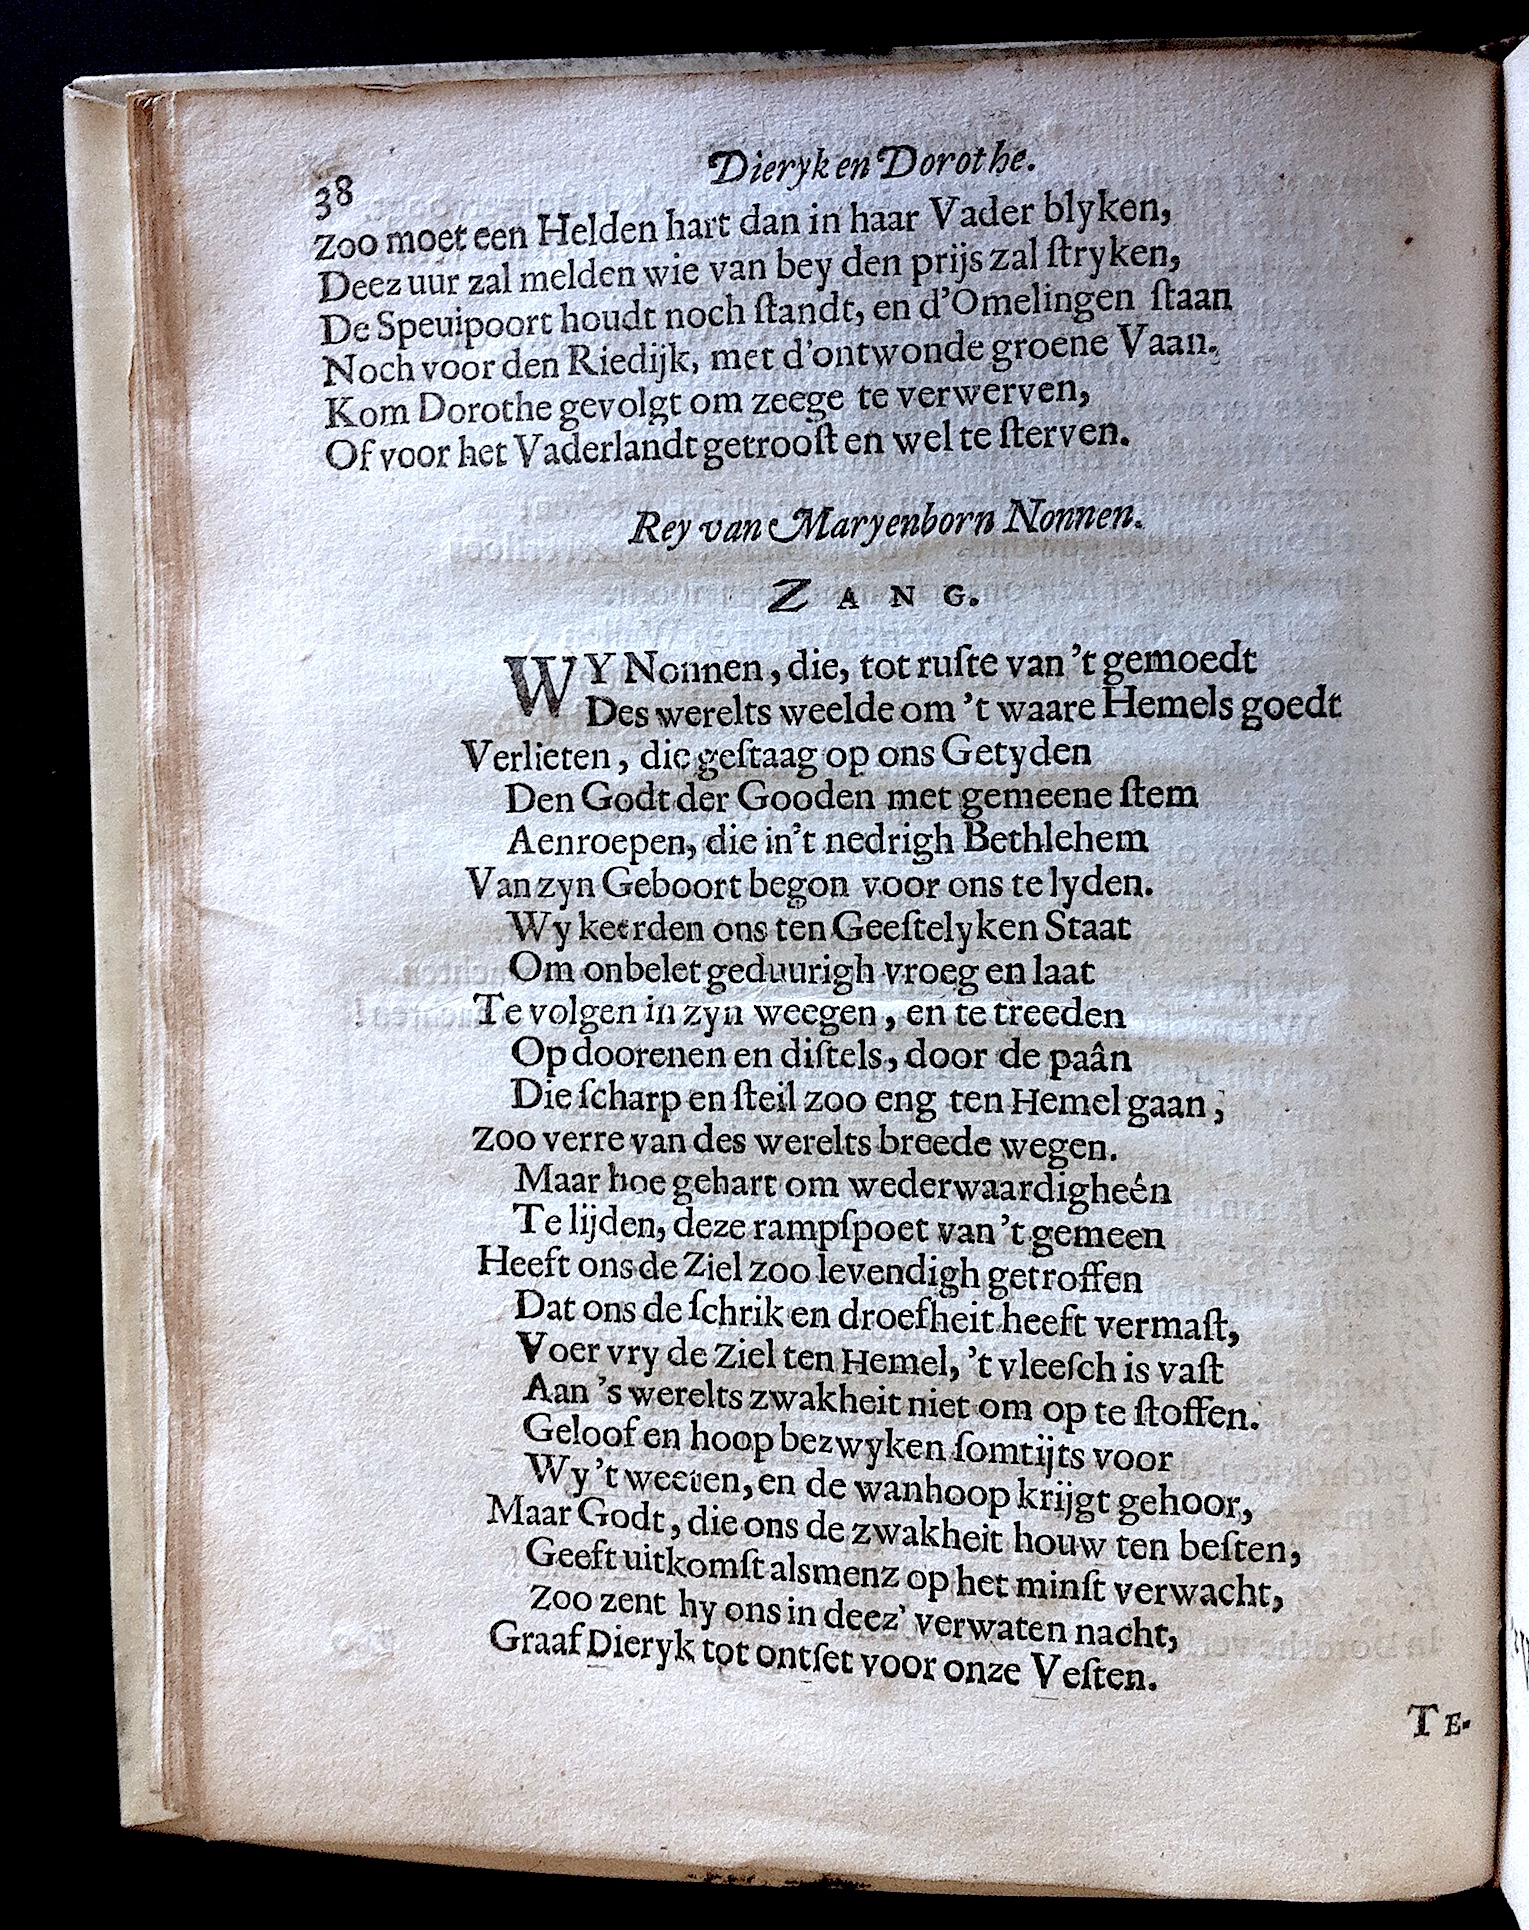 38
Dieryk en Dorothe.
Zoo moet een Helden hart dan in haar Vader blyken,
Deez uur zal melden wie van bey den prijs zal ſtryken,
De Speuipoort houdt noch ſtandt, en d'Omelingen ſtaan
Noch voor den Riedijk, met d'ontwonde groene Vaan.
Kom Dorothe gevolgt om zeege te verwerven,
Of voor het Vaderlandt getrooſt en wel te ſterven.
Rey van Maryenborn Nonnen.
ZANG.
WY Nonnen, die, tot ruſte van 't gemoedt
Des werelts weelde om 't waare Hemels goedt
Verlieten, die geſtaag op ons Getyden
Den Godt der Gooden met gemeene ſtem
Aenroepen, die in't nedrigh Bethlehem
Van zyn Geboort begon voor ons te lyden.
Wy keerden ons ten Geeſtelyken Staat
Om onbelet geduurigh vroeg en laat
Te volgen in zyn weegen, en te treeden
Op doorenen en diſtels, door de paân
Die ſcharp en ſteil zoo eng ten Hemel gaan,
Zoo verre van des werelts breede wegen.
Maar hoe gehart om wederwaardigheên
Te lijden, deze rampſpoet van 't gemeen
Heeft ons de Ziel zoo levendigh getroffen
Dat ons de ſchrik en droefheit heeft vermaſt,
Voer vry de Ziel ten Hemel, 't vleeſch is vaſt
Aan 's werelts zwakheit niet om op te ſtoffen.
Geloof en hoop bezwyken ſomtijts voor
Wy 't weeten, en de wanhoop krijgt gehoor,
Maar Godt, die ons de zwakheit houw ten beſten,
Geeft uitkomſt alsmenz op het minſt verwacht,
Zoo zent hy ons in deez' verwaten nacht,
Graaf Dieryk tot ontſet voor onze Veſten.
TE-